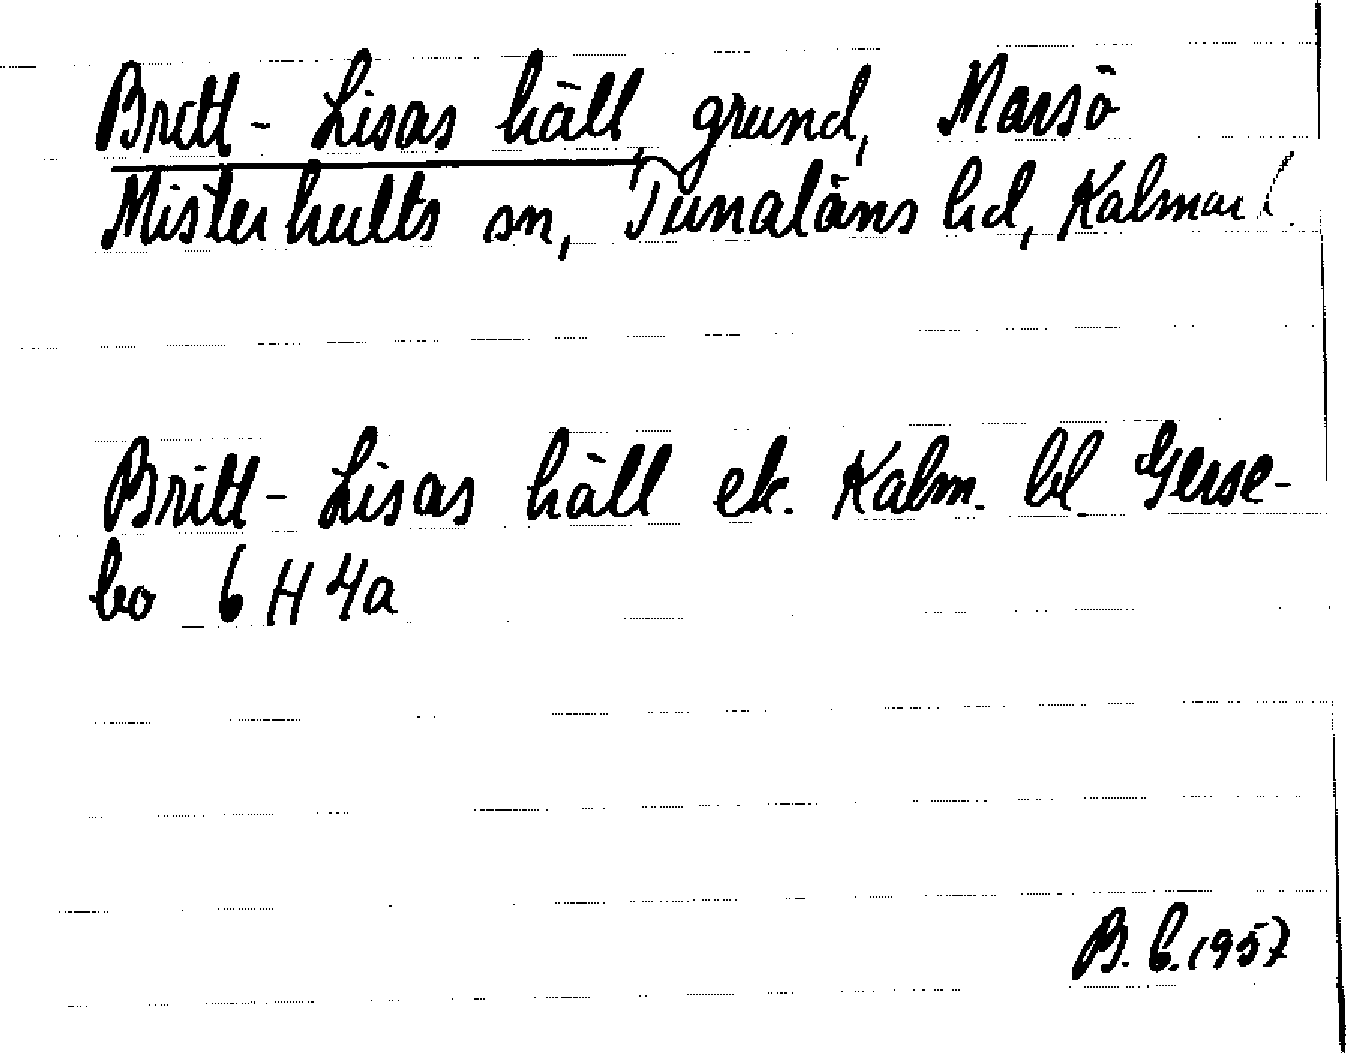 Britt-Lisas häll, grund, Marsö
Misterhults sn, Tunaläns hd, Kalmar l.
Britt-Lisas häll ek. Kalm. bl Gerse-
bo 6H4a
B. E. 1957